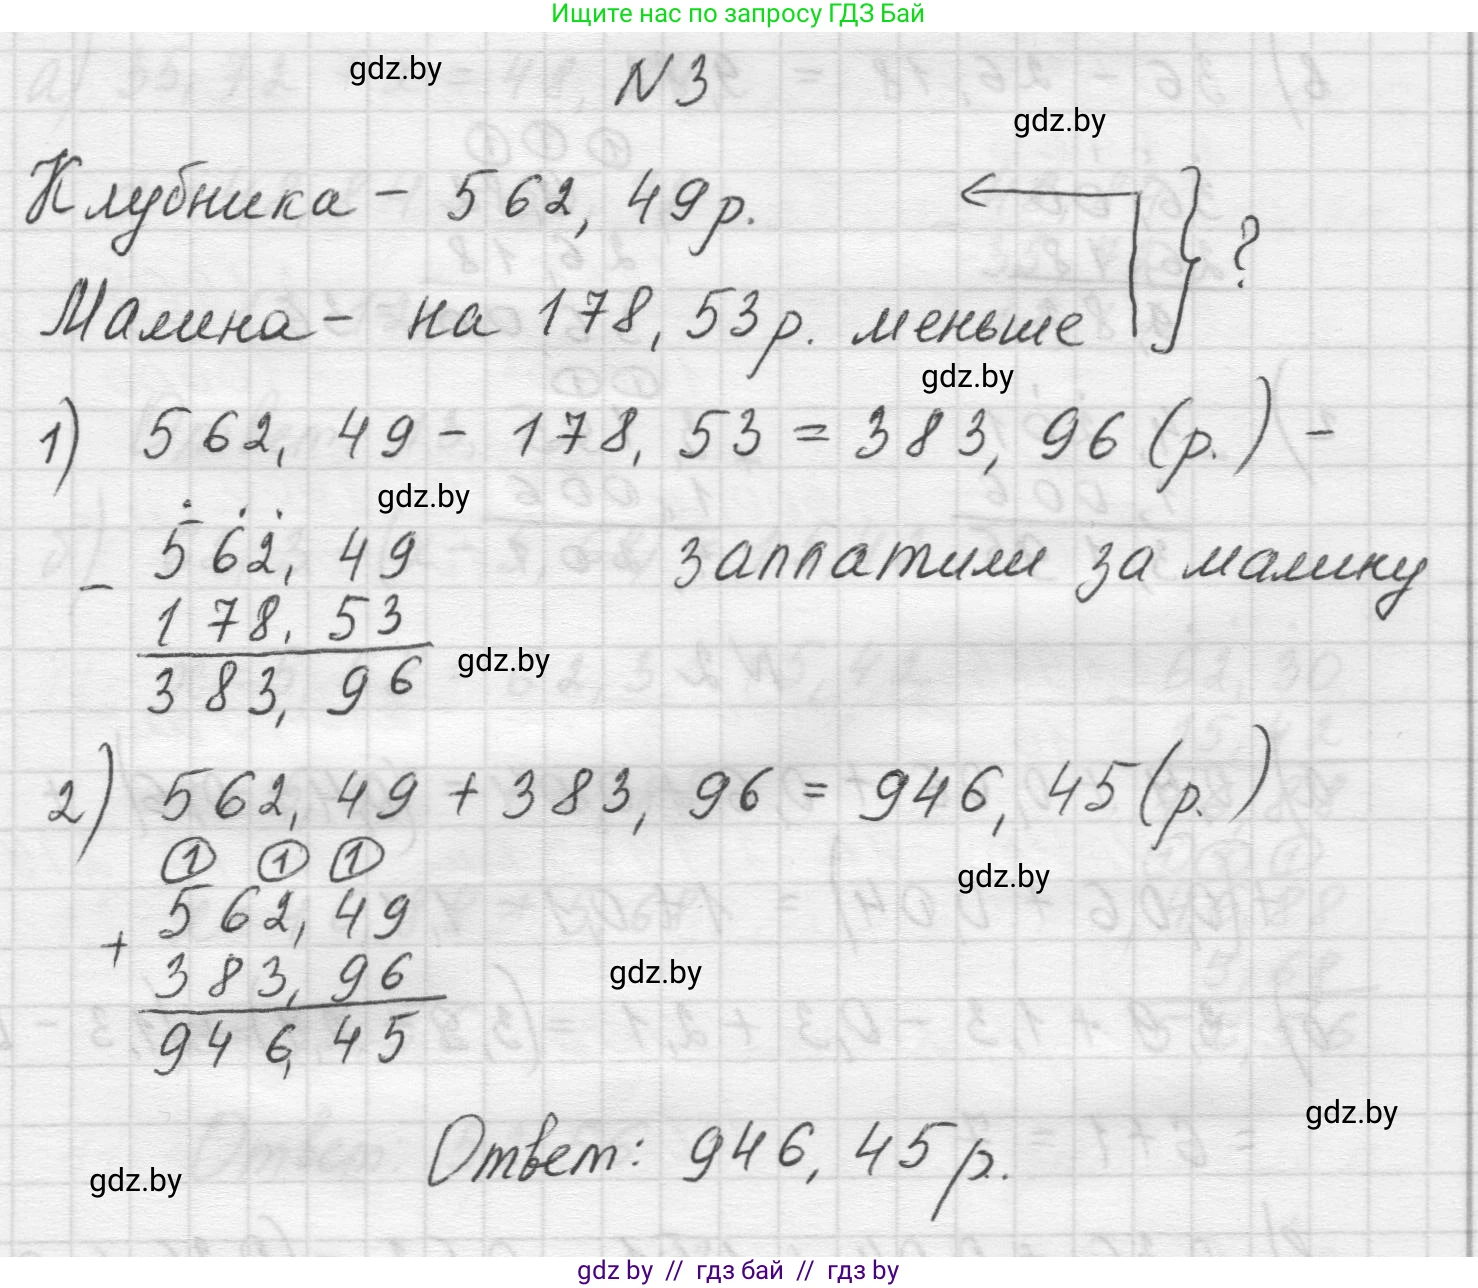 Ищите нас по запросу ГДЗ Бай
gdz.by
N 3
gdz.by
Клубника - 562,49 р.
?
Малина - на 178,53 р. меньше
gdz.by
1) 562,49 - 178,53 = 383,96 (р.) -
gdz.by
заплатили за малину
562,49
-
178,53
gdz.by
383,96
2) 562,49 + 383,96 = 946,45 (р.)
1 1 1
gdz.by
562,49
+
383,96
gdz.by
946,45
gdz.by
Ответ: 946,45 р.
gdz.by
gdz by // гдз бай // гдз by